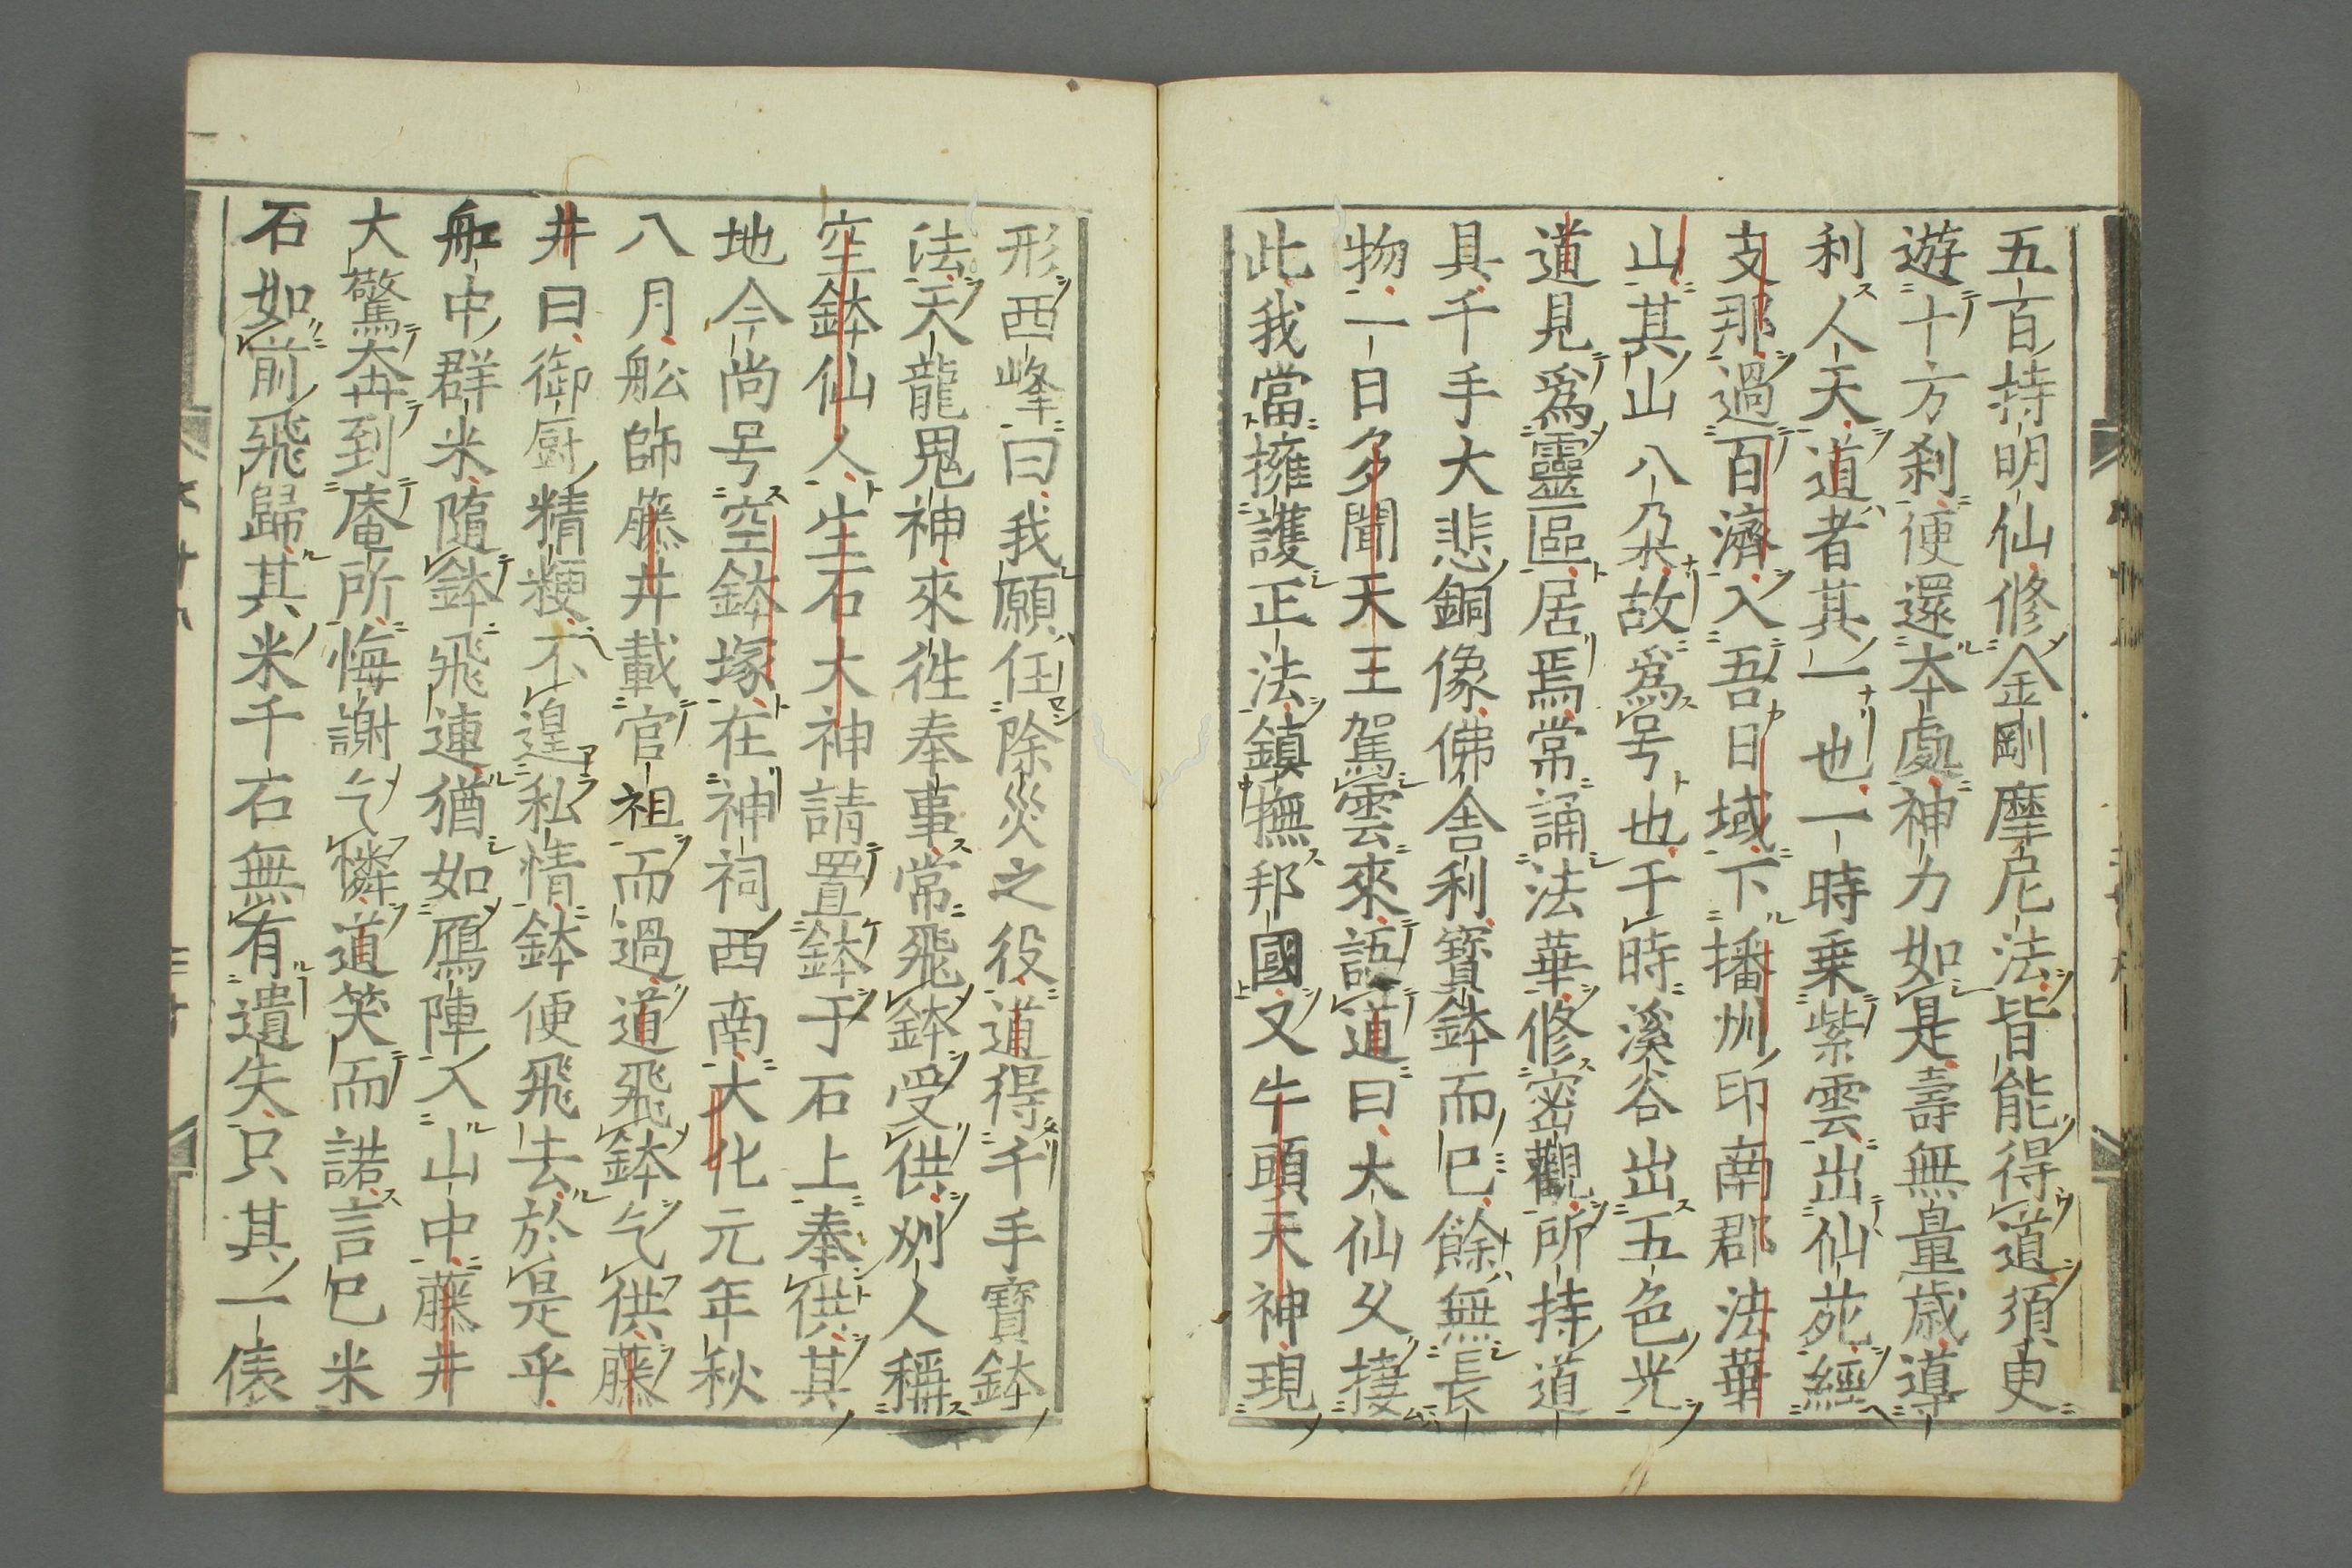 五百持明仙修金剛摩尼法皆能得道須更
遊十方刹便還本處神力如是壽無量歳導
利人天道者其一也一時乗紫雲出仙苑經
支那過百濟入吾日域下播州印南郡法華
山其山八朶故爲号也于時溪谷出五色光
道見爲靈區居焉常誦法華修密觀所持道
具千手大悲銅像佛舎利寳鉢而已餘無長
物一日多聞天王駕雲來語道曰大仙父接
此我當擁護正法鎮撫邦國又牛頭天神現
形西峰曰我願任除災之役道得千手寳鉢
法天龍鬼神來徃奉事常飛鉢受供州人稱
空鉢仙人生石大神請置鉢于石上奉供其
地今尚号空鉢塚在神祠西南大化元年秋
八月舩師藤井載官祖而過道飛鉢乞供藤
井曰御厨精粳不遑私情鉢便飛去於是乎
舡中群米隨鉢飛連猶如鴈陣入山中藤井
大驚奔到庵所悔謝乞憐道笑而諾言已米
石如前飛歸其米千石無有遺失只其一俵